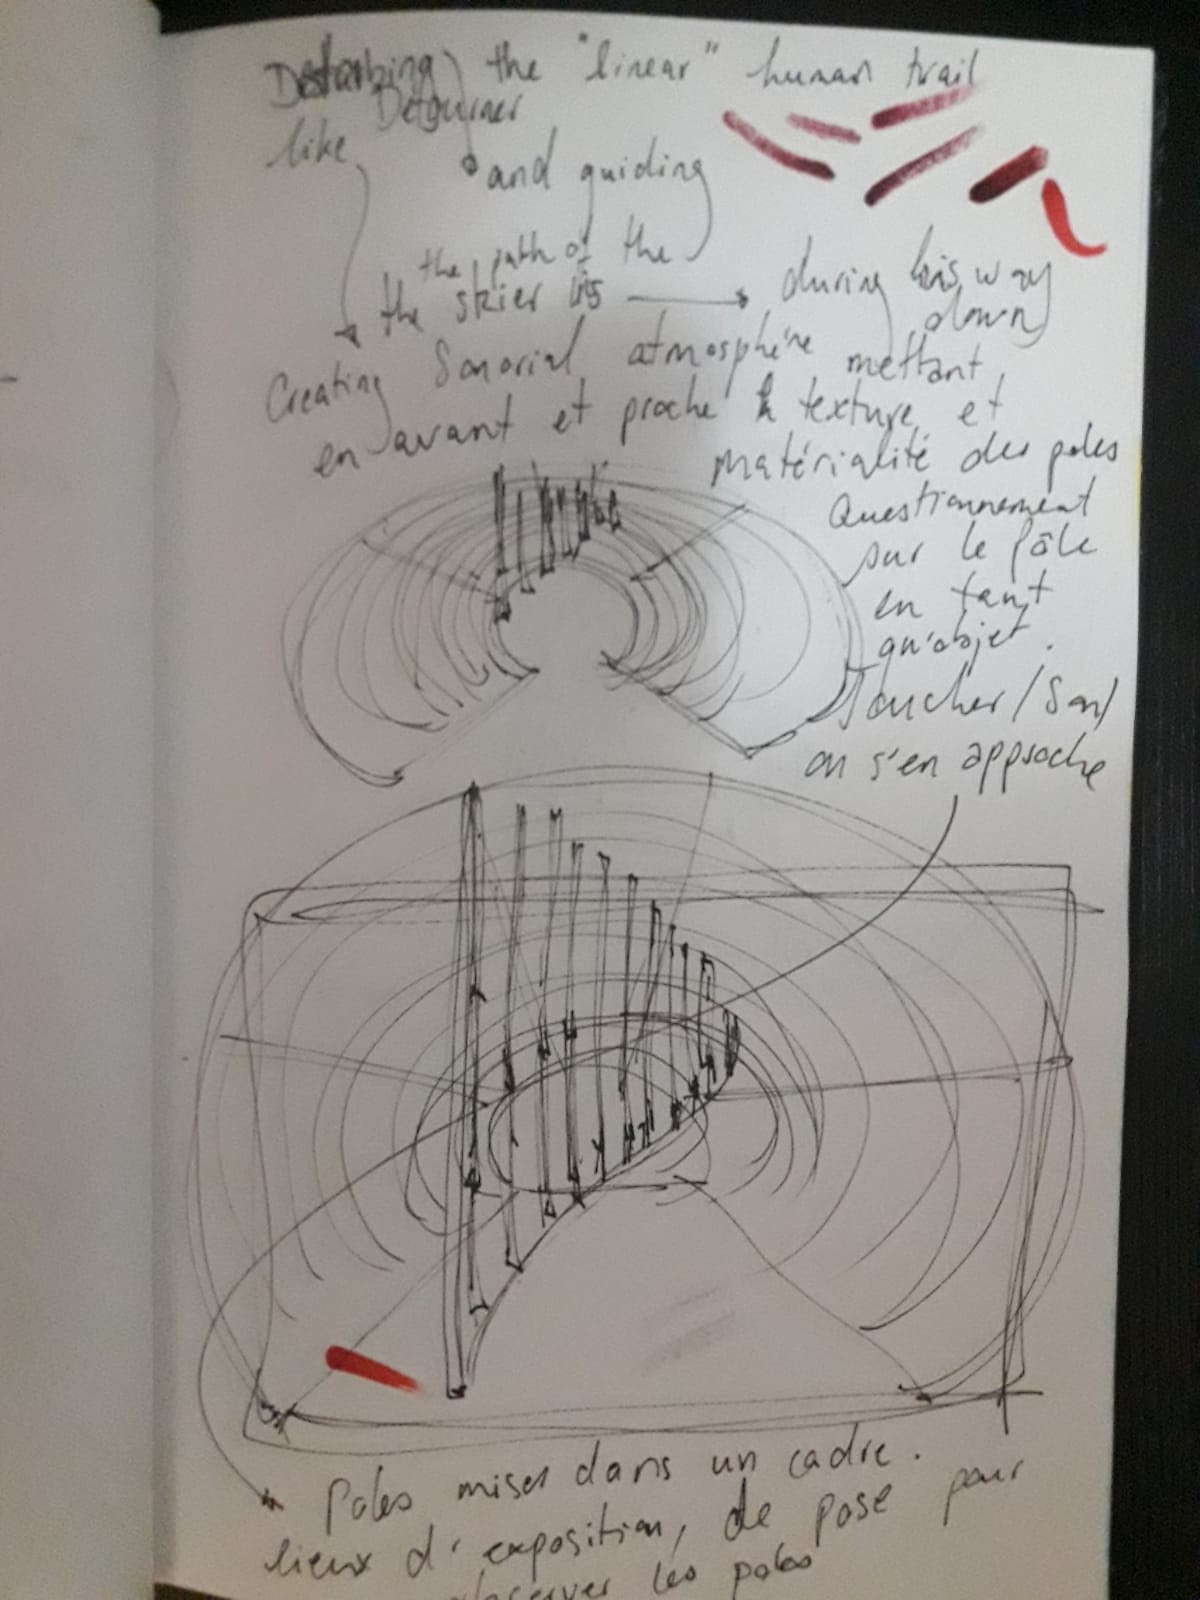 Disturbing the "linear" human trail
Détourner
like
and guiding
the path of the
the skier
during his way
down
Creating Sonorial atmosphère mettant
en avant et proche la texture et
matérialité des poles
Questionnement
sur le pôle
en tant
qu'objet.
Toucher/Son/
on s'en approche
Poles mises dans un cadre.
lieux d'exposition, de pose pour
observer les poles